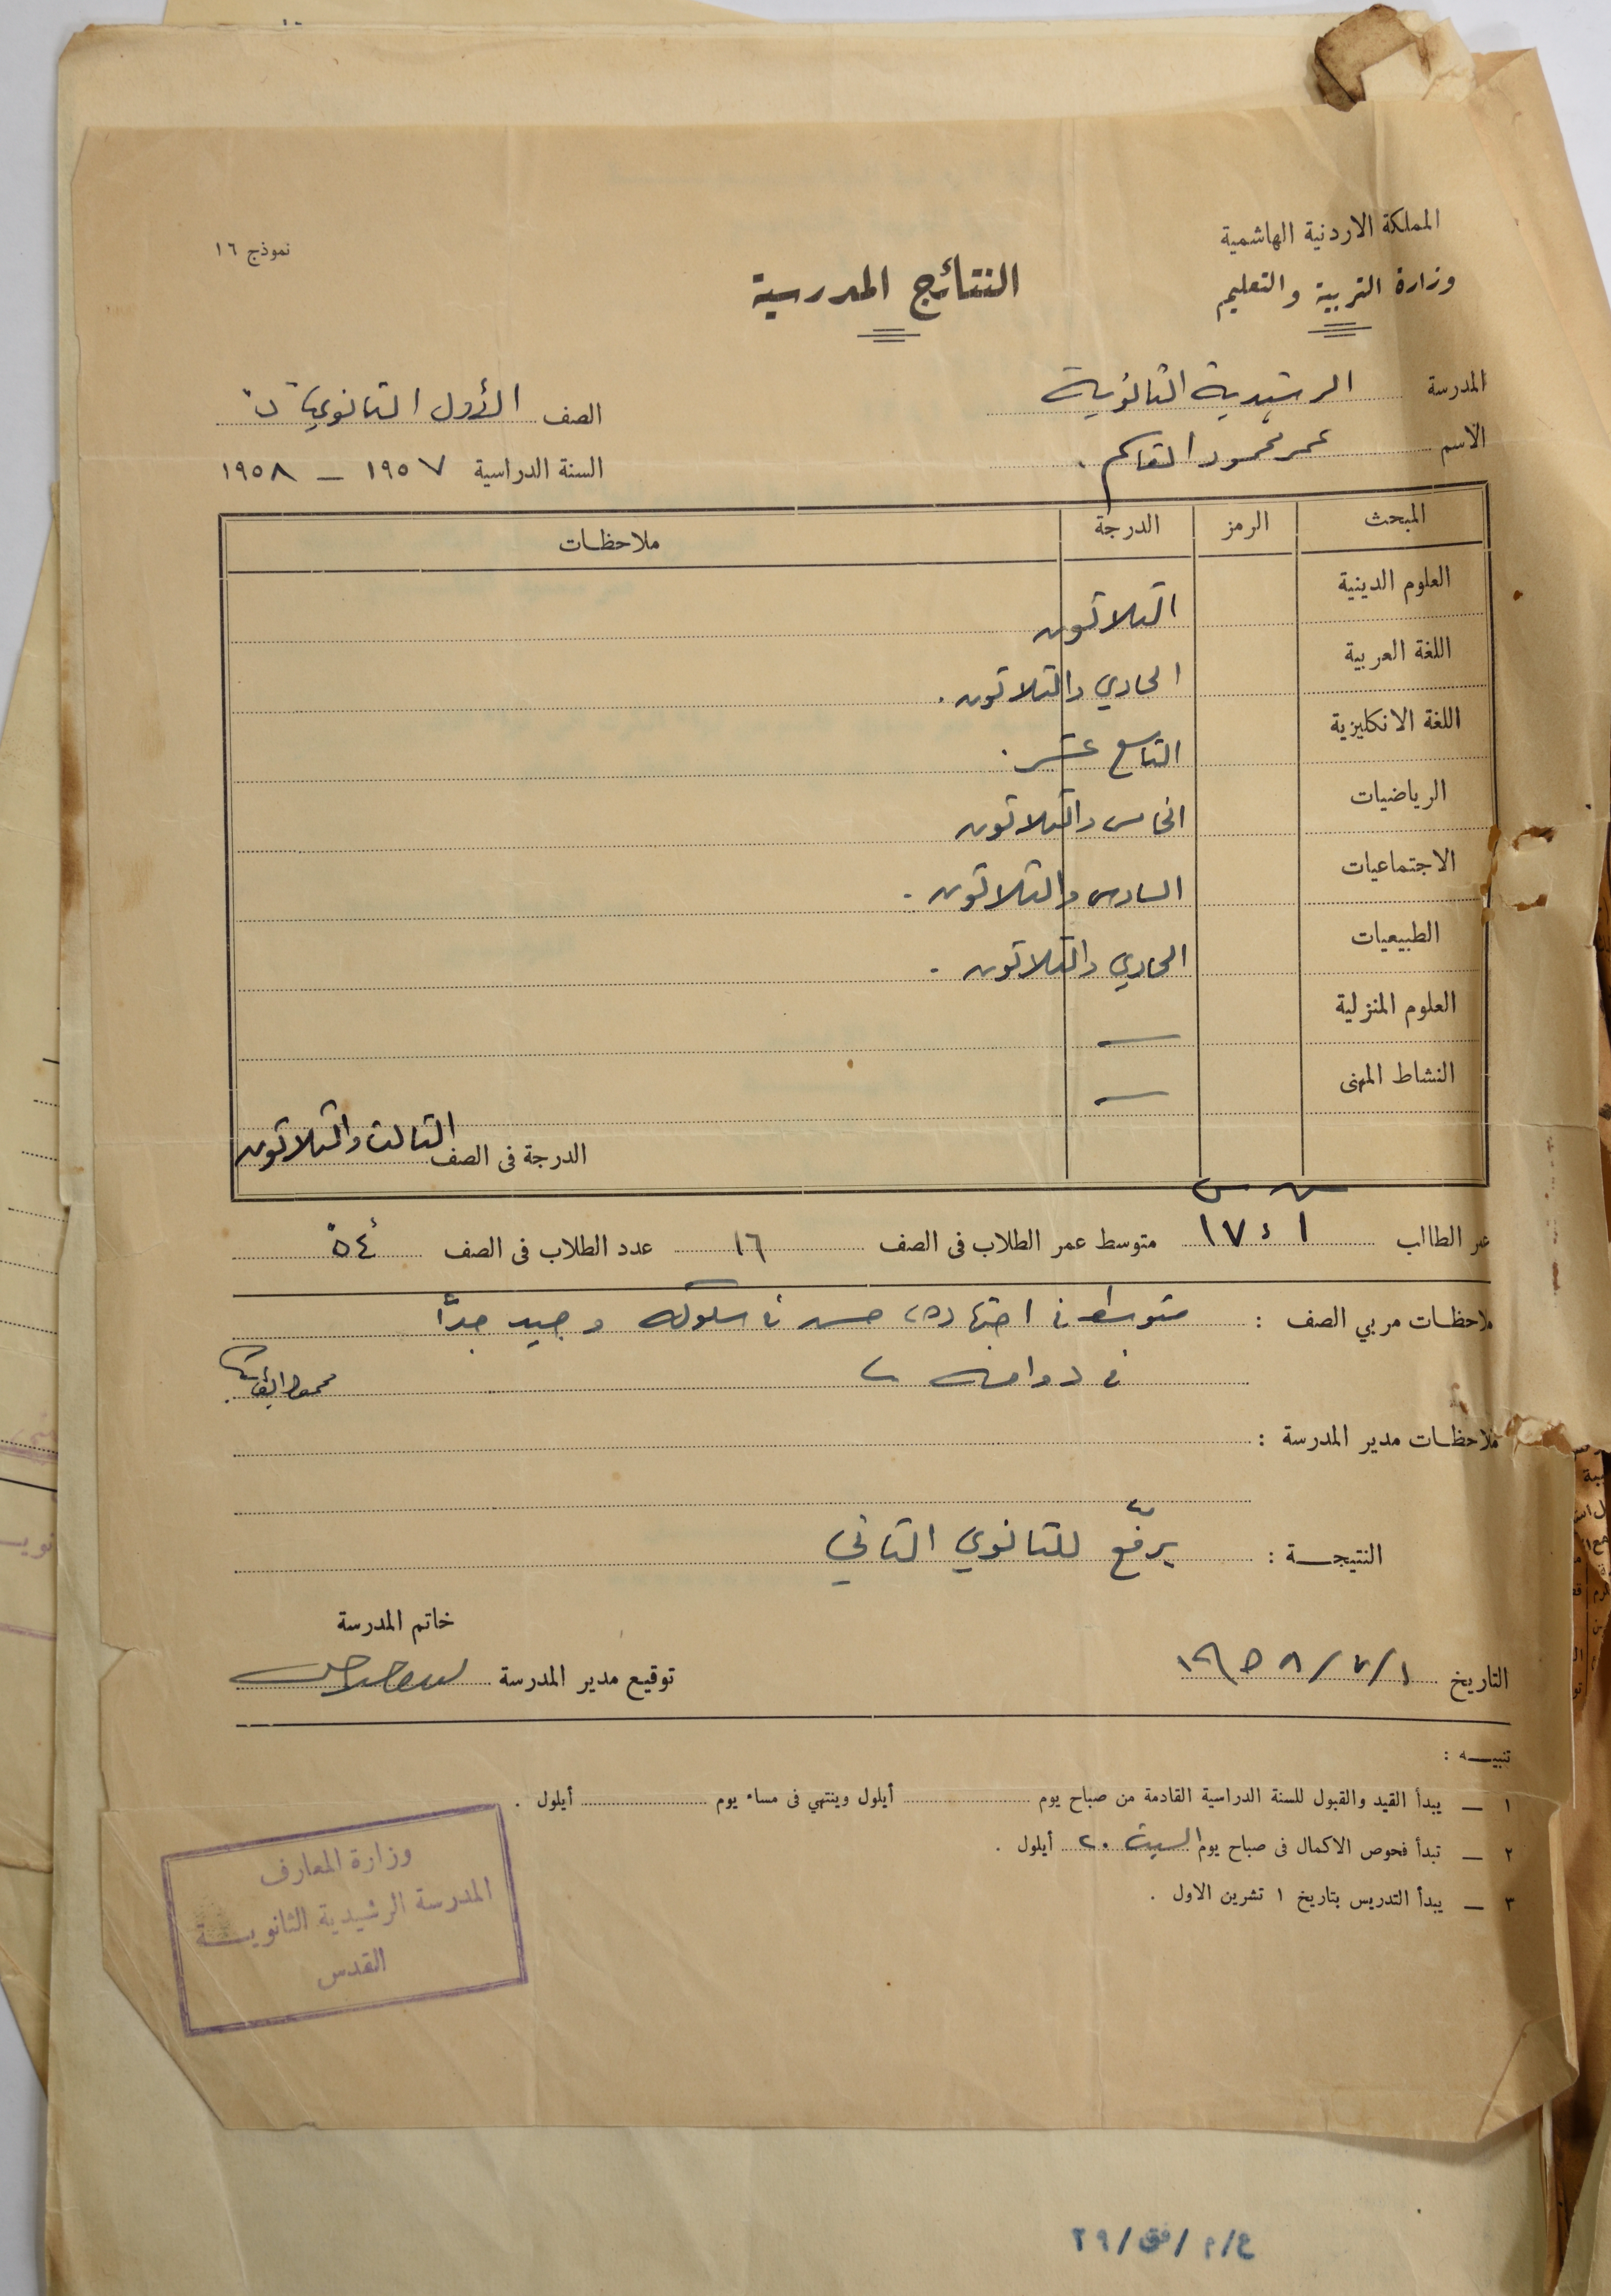 المملكة الاردنية الهاشمية
وزارة التربية والتعليم
نموذج ١٦
النتائج المدرسية
المدرسة الرشيدية الثانوية
الصف الأول الثانوي
الاسم عمر محمود القاسم .
السنة الدراسية ١٩٥٧ – ١٩٥٨
المبحث الرمز الدرجة ملاحظات
العلوم الدينية الثلاثون
اللغة العربية الحادي والثلاثون .
اللغة الانكليزية التاسع عشر .
الرياضيات الخامس والثلاثون
الاجتماعيات السادس والثلاثون .
الطبيعيات الحادي والثلاثون .
العلوم المنزلية —
النشاط المهنى —
الدرجة فى الصف الثالث والثلاثون
عمر الطالب ١ ، ١٧ متوسط عمر الطلاب فى الصف ١٦ عدد الطلاب فى الصف ٥٤
ملاحظات مربي الصف : متوسط في اجتهاده، حسن في سلوكه وجيد جداً
في دوامه
ملاحظات مدير المدرسة :
النتيجة : يرفّع للثانوي الثاني
خاتم المدرسة
التاريخ ١/٧/١٩٥٨ توقيع مدير المدرسة
تنبيه :
١ — يبدأ القيد والقبول للسنة الدراسية القادمة من صباح يوم أيلول وينتهي فى مساء يوم أيلول .
٢ — تبدأ فحوص الاكمال فى صباح يوم السبت ٢٠ أيلول .
٣ — يبدأ التدريس بتاريخ ١ تشرين الاول .
وزارة المعارف
المدرسة الرشيدية الثانوية
القدس